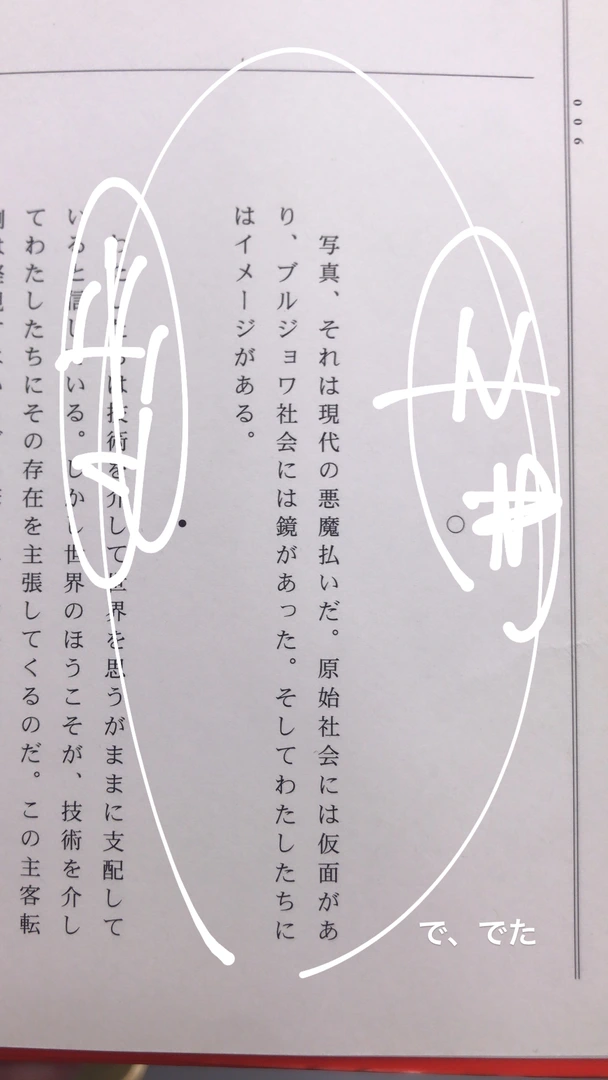 006
○
写真、それは現代の悪魔払いだ。原始社会には仮面があ
り、ブルジョワ社会には鏡があった。そしてわたしたちに
はイメージがある。
●
わたしたちは技術を介して世界を思うがままに支配して
いると信じている。しかし世界のほうこそが、技術を介し
てわたしたちにその存在を主張してくるのだ。この主客転
で、でた